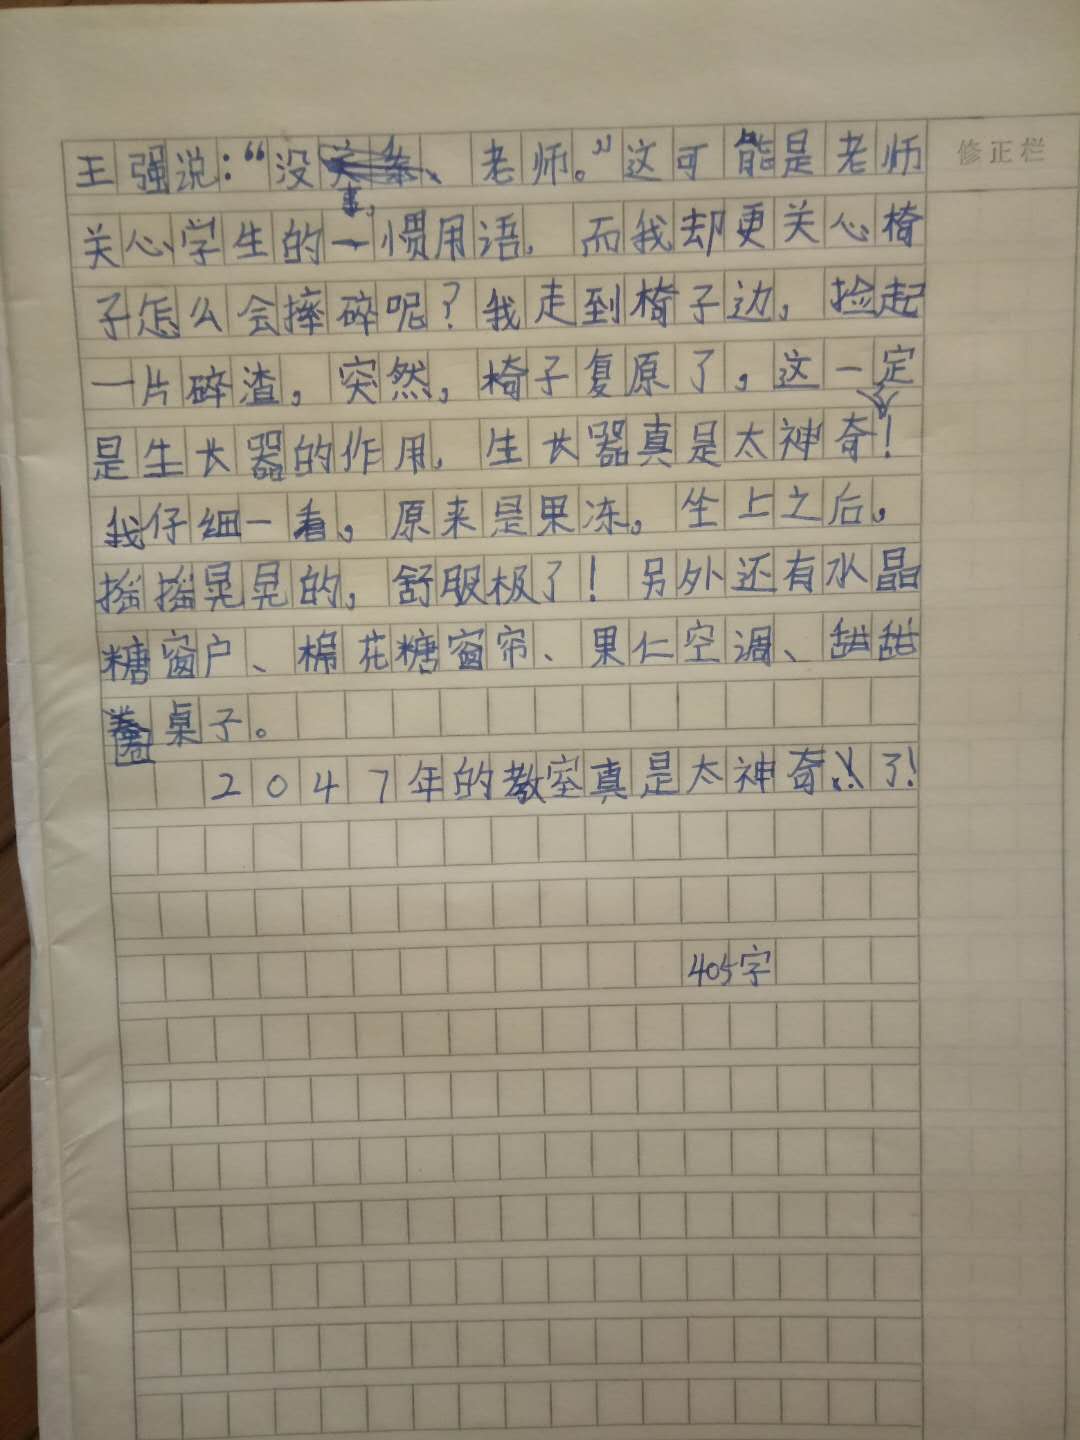 修正栏
王强说：“没事，老师。”这可能是老师
关心学生的一惯用语，而我却更关心椅
子怎么会摔碎呢？我走到椅子边，捡起
一片碎渣，突然，椅子复原了，这一定
是生长器的作用，生长器真是太神奇了！
我仔细一看，原来是果冻，坐上之后，
摇摇晃晃的，舒服极了！另外还有水晶
糖窗户、棉花糖窗帘、果仁空调、甜甜
圈桌子。
2047年的教室真是太神奇了！
405字